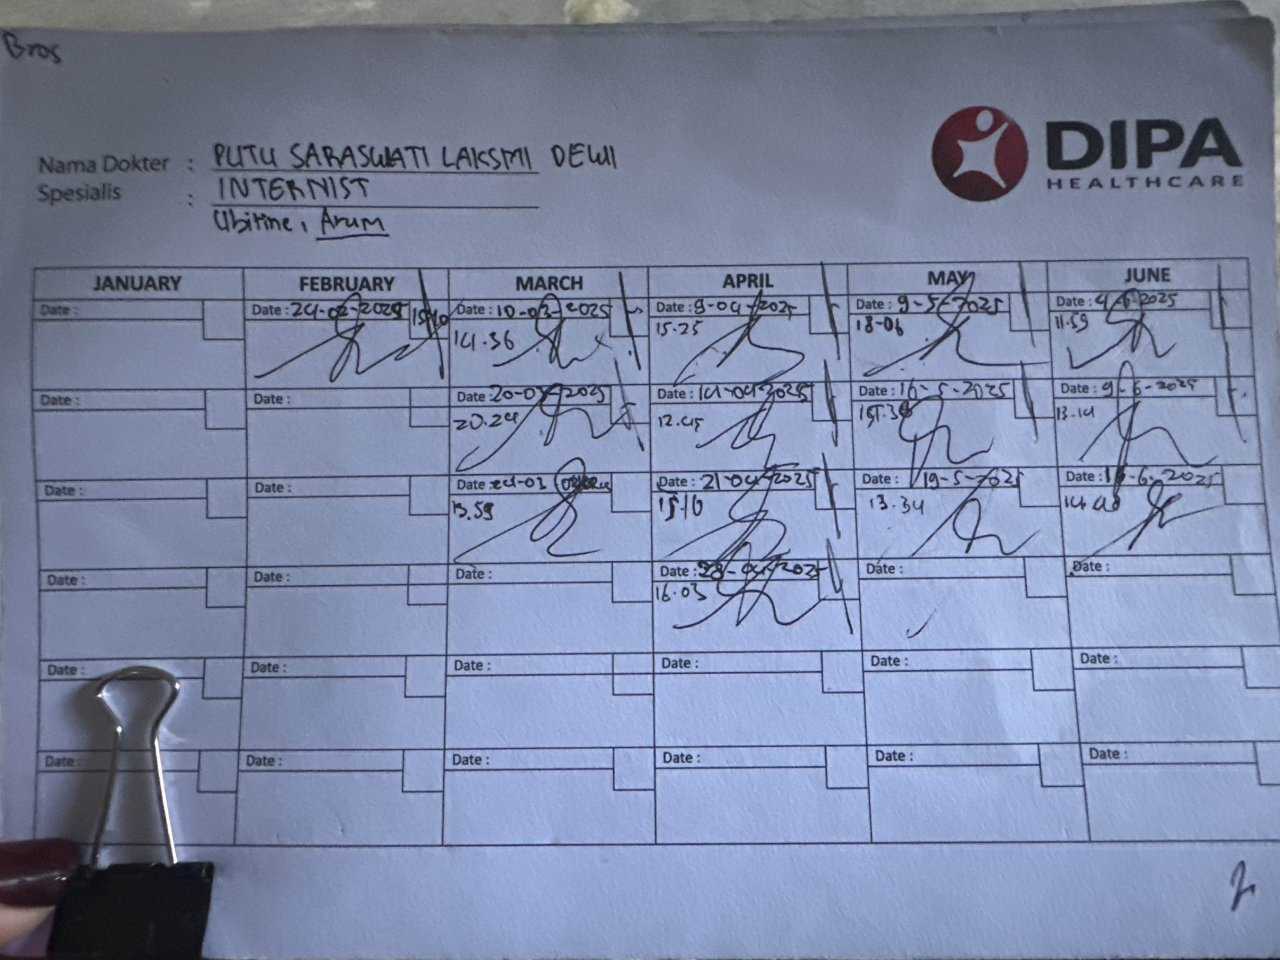 Bros
DIPA
HEALTHCARE
Nama Dokter : PUTU SARASWATI LAKSMI DEWI
Spesialis : INTERNIST
Arum
JANUARY FEBRUARY MARCH APRIL MAY JUNE
Date : Date : 24-02-2025 Date : 10-03-2025 Date : 9-04-2025 Date : 9-5-2025 Date : 2025
14.36 15.25 18-06 11.59
Date : Date : Date : 20-03-2025 Date : 14-04-2025 Date : 16-5-2025 Date : 9-6-2025
20.24 12.45 13.14
Date : Date : Date : 24-03 Date : 21-04-2025 Date : 19-5-2025 Date : 6-2025
13.59 15.16 13.34
Date : Date : Date : Date : 28-04-2025 Date : Date :
16.03
Date : Date : Date : Date : Date : Date :
Date : Date : Date : Date : Date : Date :